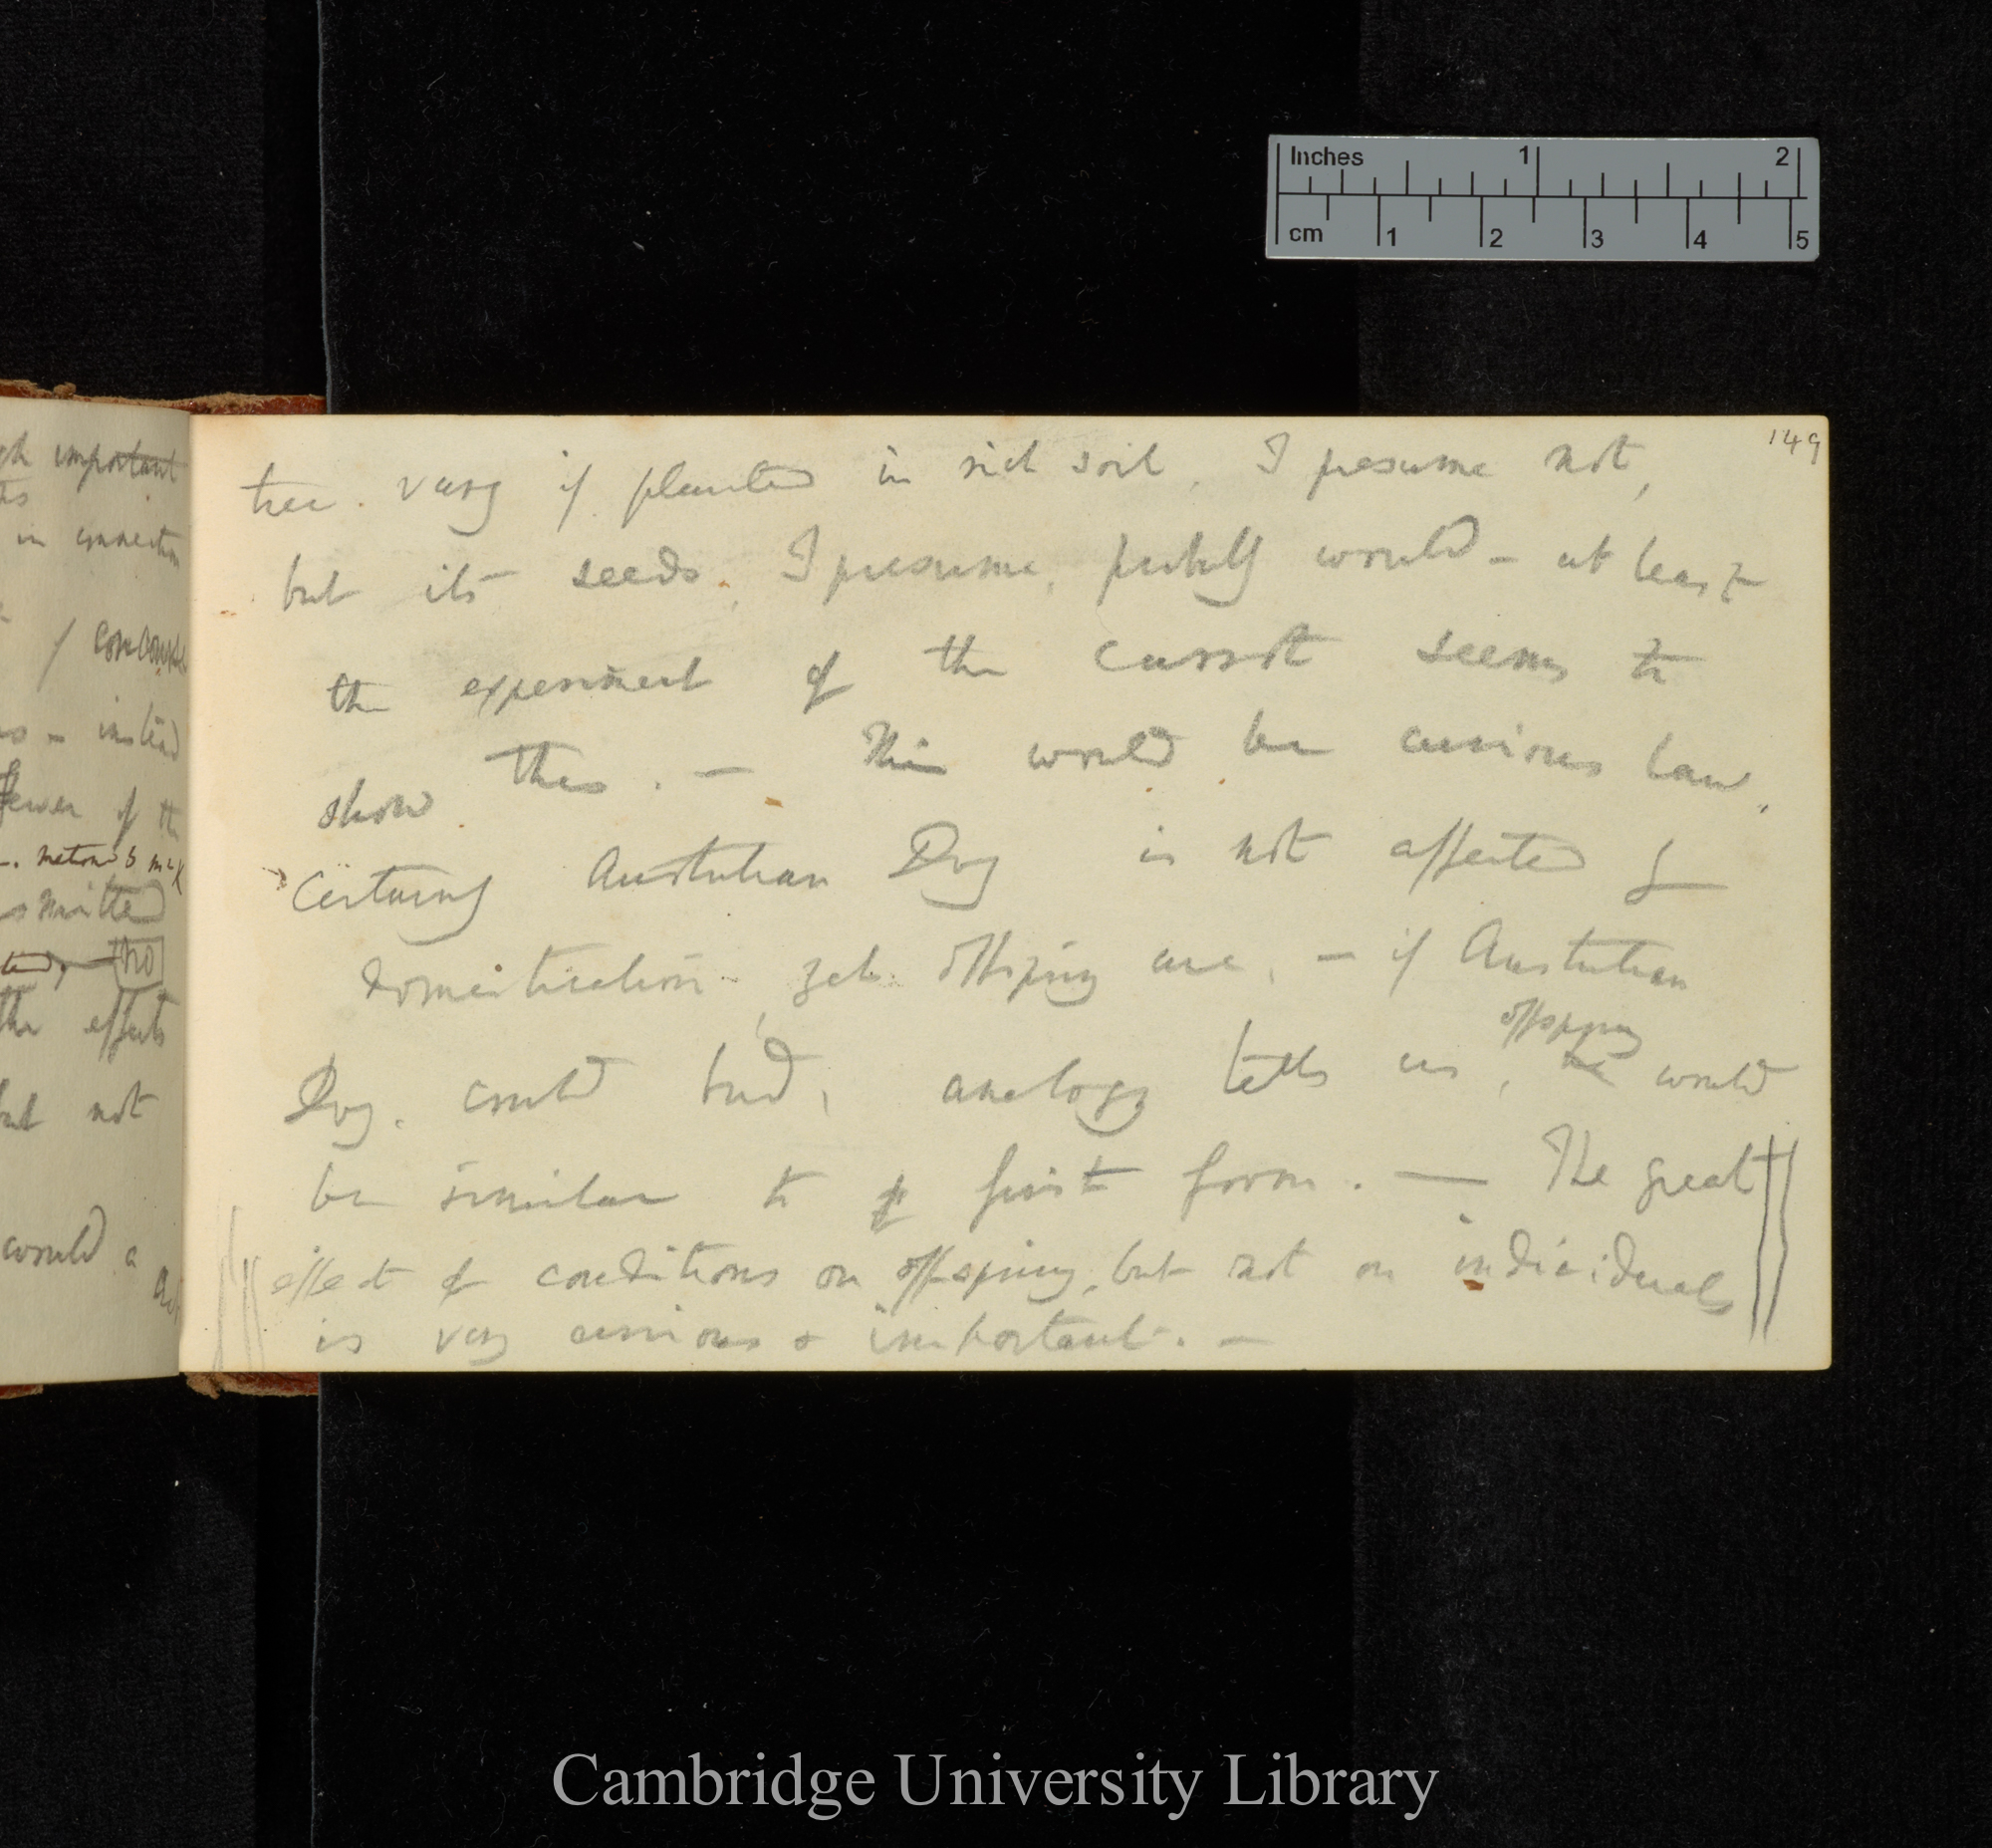 Inches 1 2
cm 1 2 3 4 5
149
gh important
in connection
tree. vary if planted in rich soil, I presume not,
but its seeds, I presume, probably would – at least
the experiment of the carrot seems to
show this. — This would be curious law,
Certainly Australian Dog is not affected by
domestication, yet offspring are, – if Australian
offspring
Dog. could bud, analogy tells us, he would
be similar to first form. — The great
effect of conditions on offspring, but not on individuals
is very curious & important. —
instead
fewer of th
smitted
NO
the effects
but not
would a
Cambridge University Library